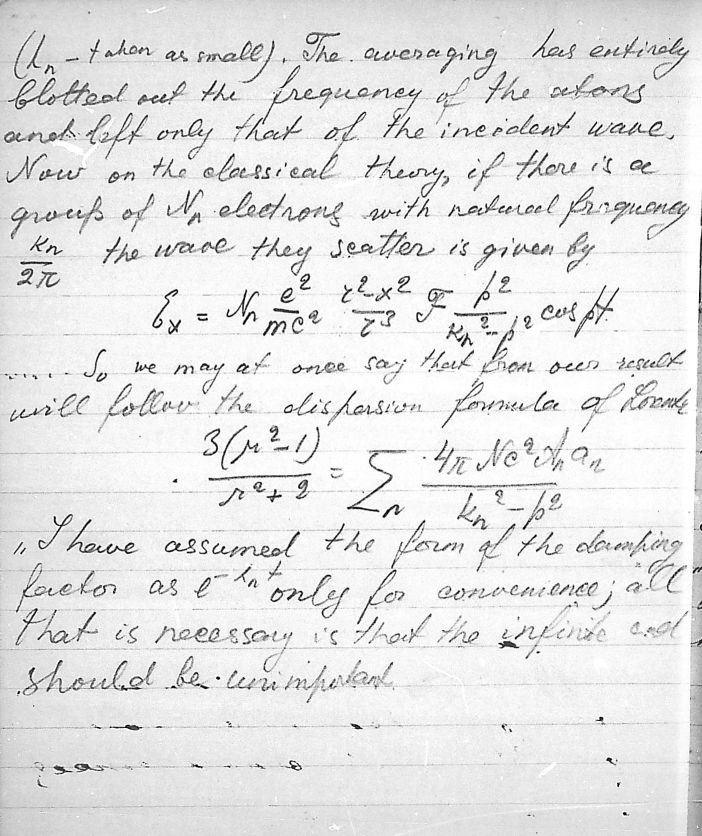 (λn - taken as small). The averaging has entirely
blotted out the frequency of the atoms
and left only that of the incident wave.
Now on the classical theory, if there is a
group of Nn electrons with natural frequency
kn/2π the wave they scatter is given by
Ɛx = Nn e²/mc² (r²-x²)/r³ F p²/(kn²-p²) cos pt.
..... So we may at once say that from our result
will follow the dispersion formula of Lorentz
3(μ²-1)/(μ²+2) = Σn 4πNe²An an/(kn²-p²)
„I have assumed the form of the damping
factor as e^-λnt only for convenience; all
that is necessary is that the infinite end
should be unimportant.